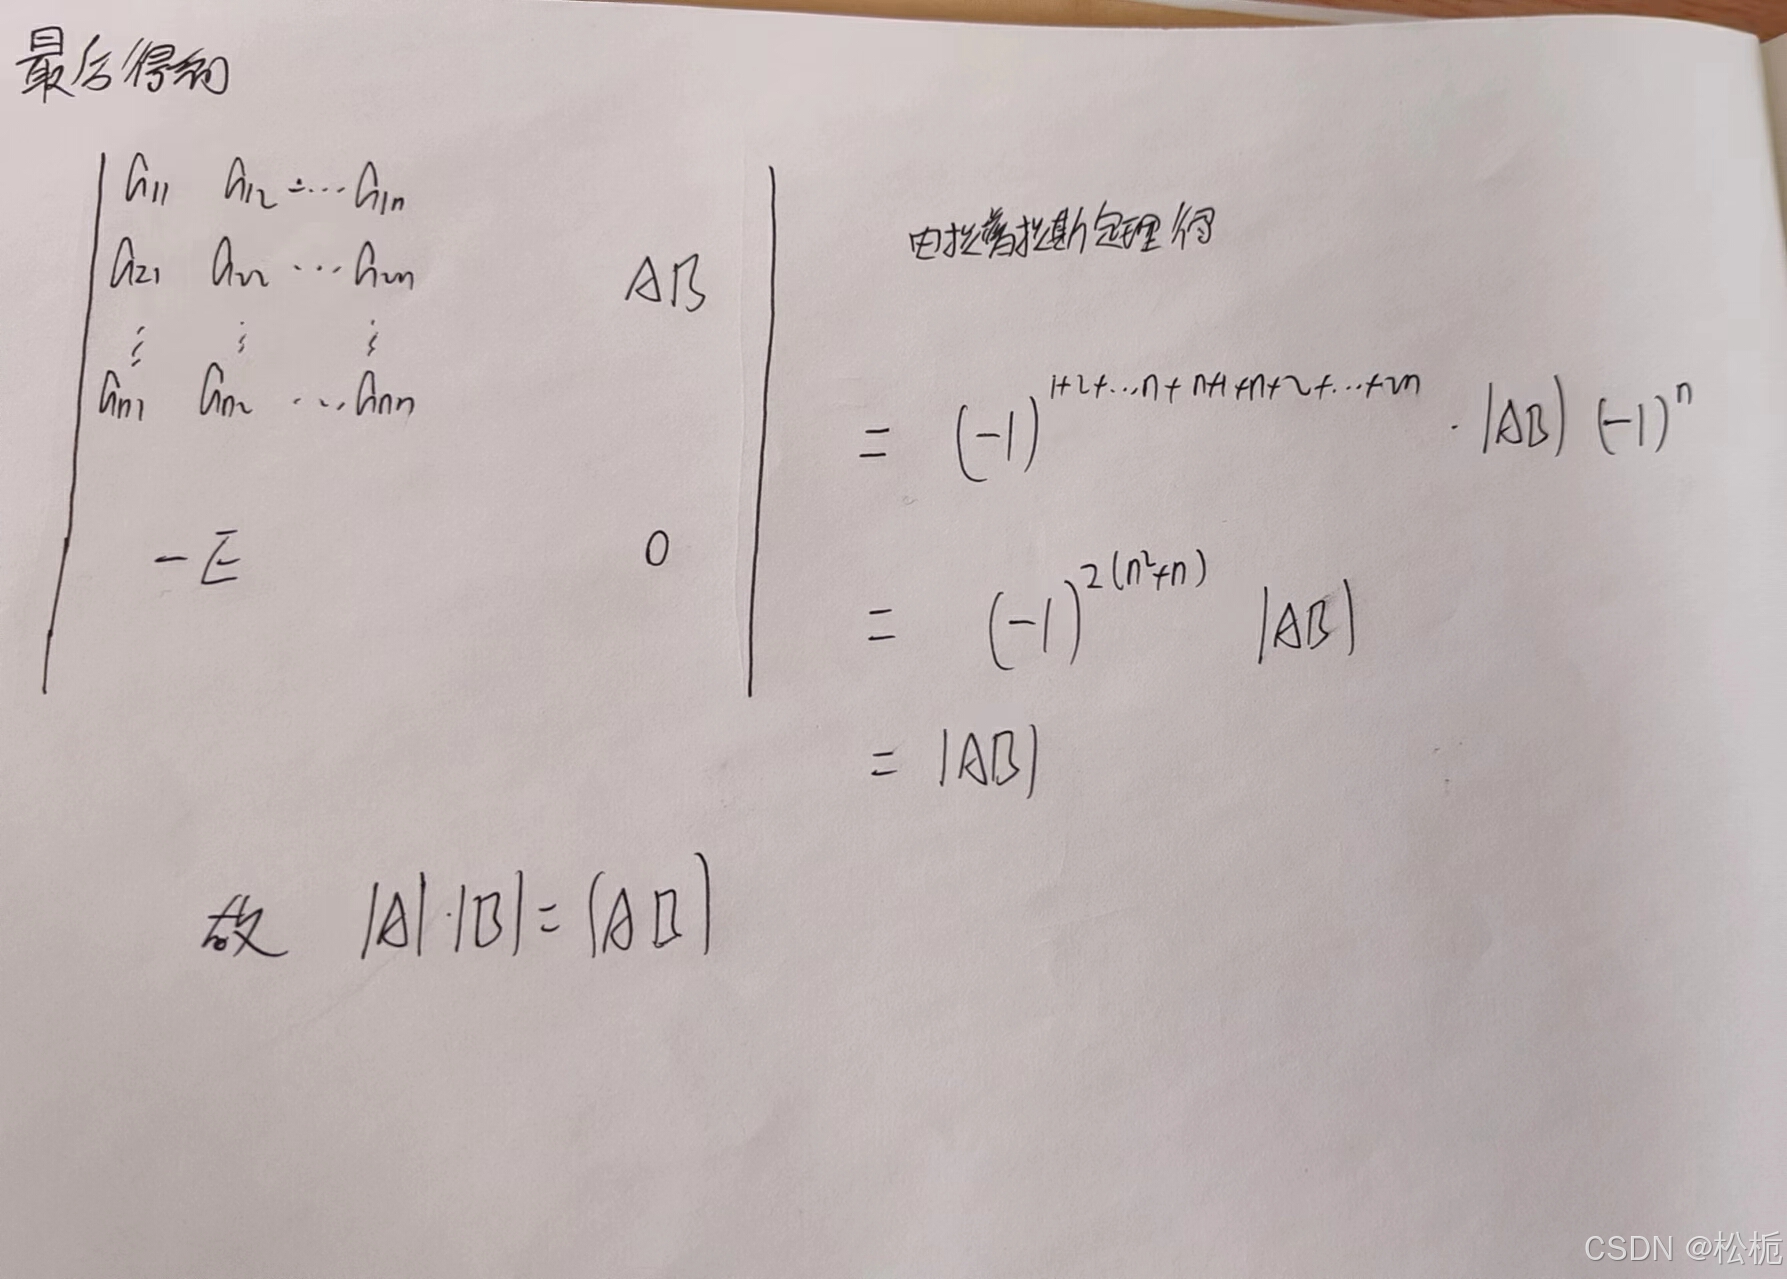 最后得到
a11 a12 ⋯ a1n
a21 a22 ⋯ a2n AB
⋮ ⋮ ⋮
an1 an2 ⋯ ann
-E 0
由拉普拉斯定理得
= (-1)^{1+2+⋯n+n+1+n+2+⋯+2n} · |AB| (-1)^n
= (-1)^{2(n²+n)} |AB|
= |AB|
故 |A|·|B|=|AB|
CSDN @松栀